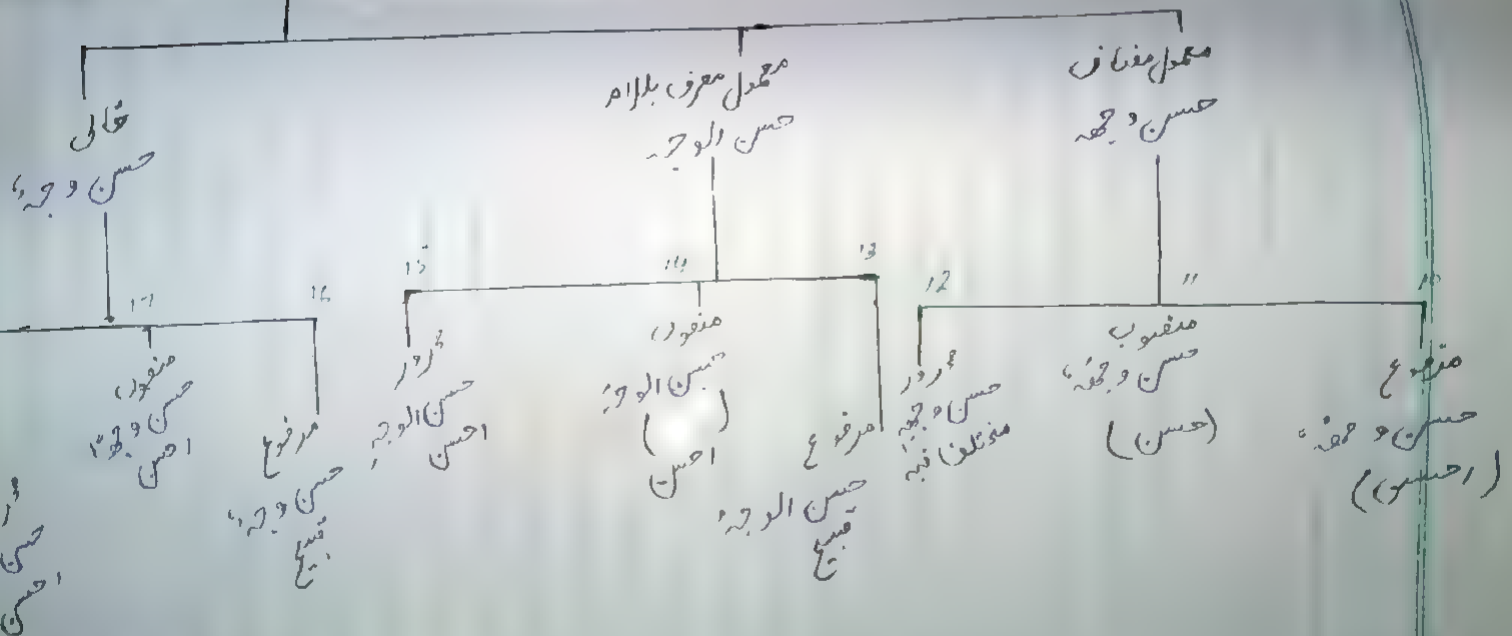 معمول مضاف
حسن وجهه
معمول معرف باللام
حسن الوجہ
خالی
حسن وجہ
10
مرفوع
حسن وجهہ
(احسن)
11
منصوب
حسن وجهہ
(حسن)
12
مجرور
حسن وجهہ
مختلف فیہ
13
مرفوع
حسن الوجہ
قبیح
14
منصوب
حسن الوجہ
( )
احسن
15
مجرور
حسن الوجہ
احسن
16
مرفوع
حسن وجہ
قبیح
17
منصوب
حسن وجها
احسن
حسن
احسن